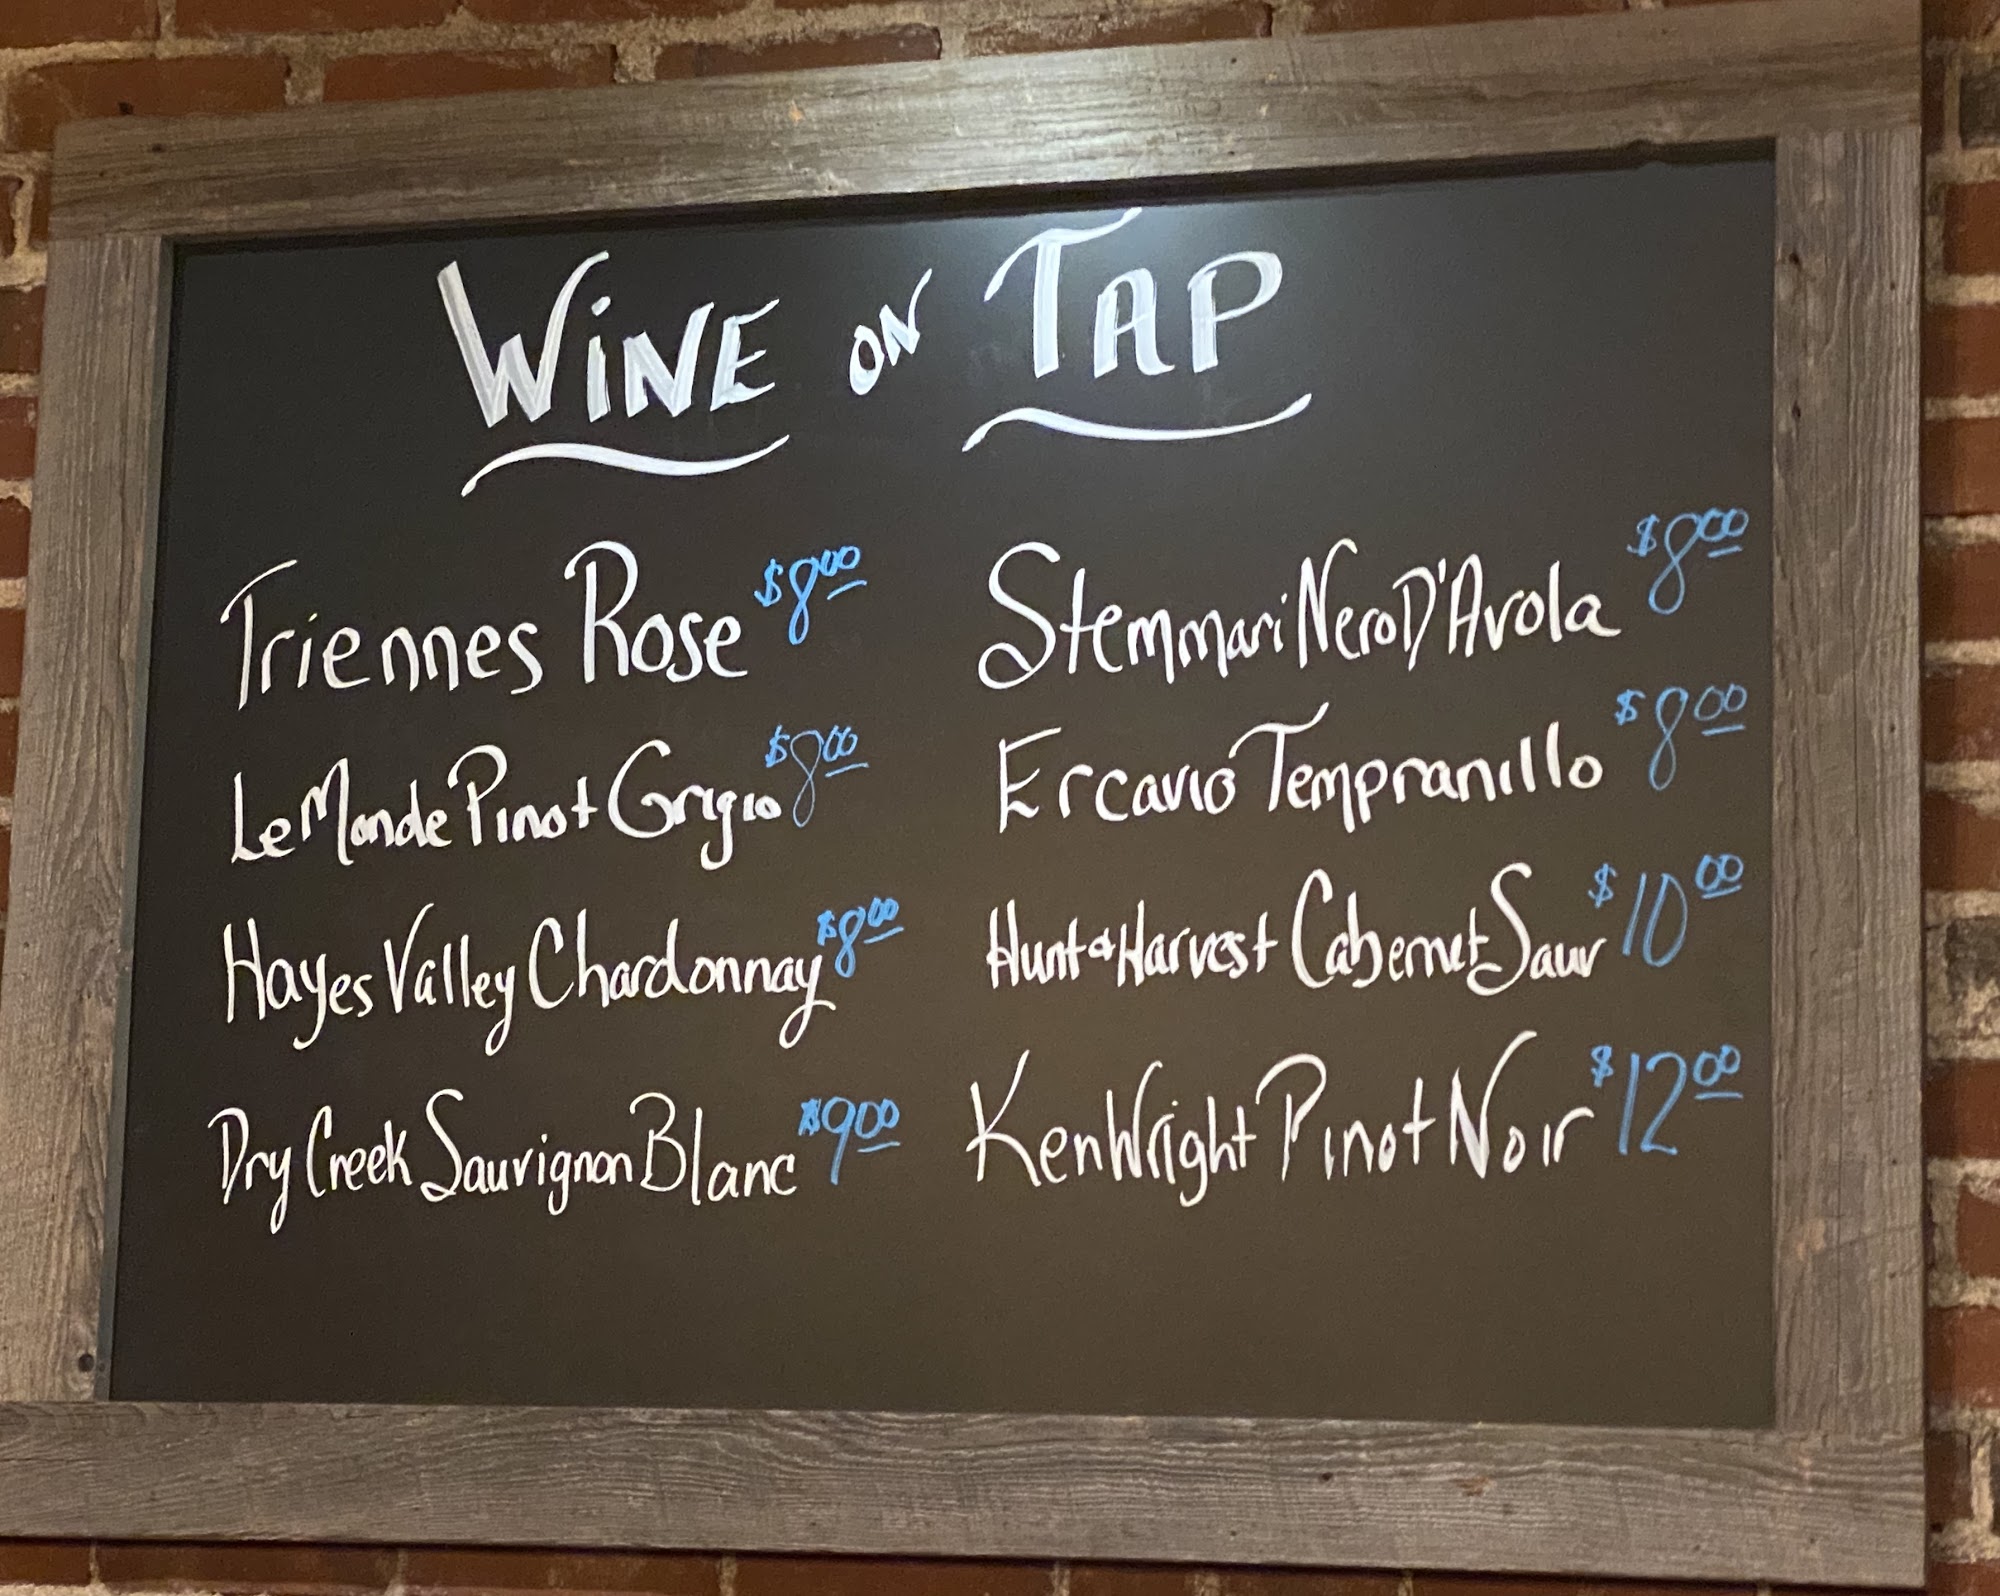 WiNE ON TAP
Triennes Rose $8.00
Le Monde Pinot Grigio $8.00
Hayes Valley Chardonnay $8.00
Dry Creek Sauvignon Blanc $9.00
Stemmari Nero D'Avola $8.00
Ercavio Tempranillo $8.00
Hunt & Harvest Cabernet Sauv $10.00
Ken Wright Pinot Noir $12.00